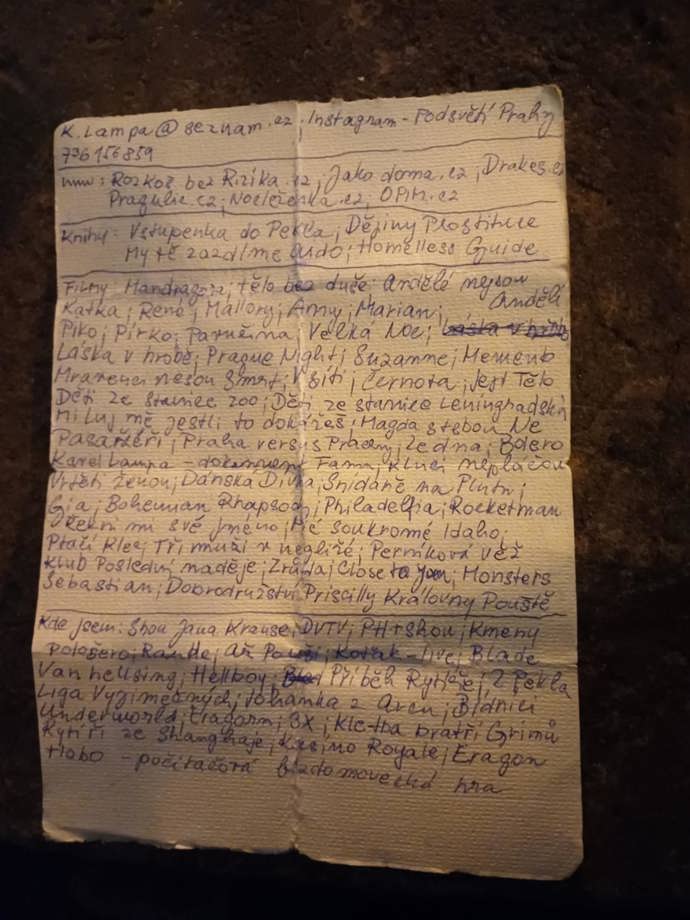 K. Lampa@seznam.cz . Instagram - Podsvětí Prahy
736 156859
www: Rozkoš bez Rizika.cz ; Jako doma.cz ; Drakes.cz
Pragulic.cz ; Nocleženka.cz ; OPIM.cz
Knihy: Vstupenka do Pekla ; Dějiny Prostituce
My tě zazdíme Aido ; Homelless Guide
Filmy: Mandragora ; tělo bez duše Andělé nejsou Andělé
Katka ; René ; Mallory ; Anny ; Marian ;
Piko ; Pírko ; Paružina Velká Noc ;
Láska v hrobě ; Prague Night ; Suzanne ; Memento
Mravenci nesou Smrt ; V síti ; Černota ; Jest Tělo
Děti ze stanice zoo ; Děti ze stanice Leningradská
Miluj mě jestli to dokážeš ; Magda s tebou Ne
Pasažéři ; Praha versus Prachy ; Ledna ; Bolero
Karel Lampa - Fama, kluci nepláčou
Vrtěti ženou ; Dánská Dívka ; Snídaně na Plutu ;
Gia ; Bohemian Rhapsody ; Philadelfia ; Rocketman
Řekni mi své jméno ; Mé soukromé Idaho,
Ptačí Klec ; Tři muži v negližé ; Perníková věž
Klub Poslední naděje ; Zrůda ; Close to you ; Monsters
Sebastian ; Dobrodružství Priscilly Královny Pouště
Kde jsem: Show Jana Krause ; DVTV ; PH+show ; Kmeny
Pološero ; Rande ; Až Po uši ; Kovak-live ; Blade
Van hellsing ; Hellboy ; Příběh Rytíře ; Z Pekla
Liga Vyjímečných ; Johanka z Arcu ; Bídníci
Underworld ; Eragorn ; 3X ; Kletba bratří Grimů
Rytíři ze Shanghaje ; Kasino Royale ; Eragon
Hobo - počítačová bezdomovecká hra